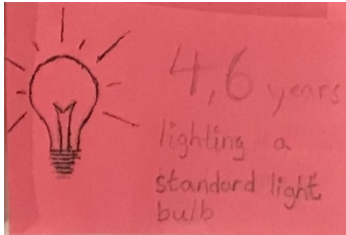 4,6 years
lighting a
standard light
bulb